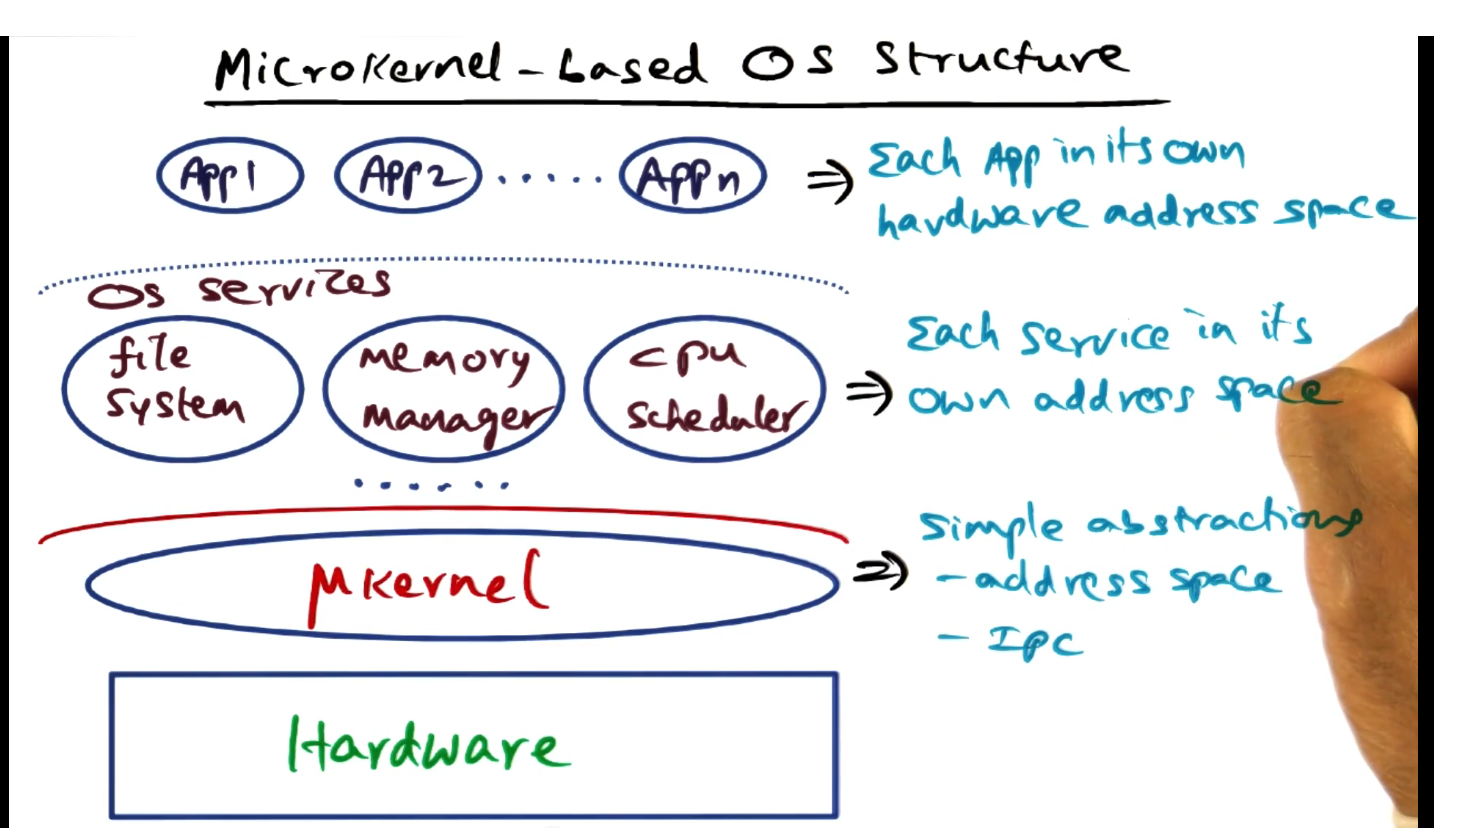 Microkernel-based OS Structure
App1 App2 ...... Appn ⇒ Each App in its own
hardware address space
OS services
file
system
memory
manager
cpu
scheduler
⇒ Each service in its
own address space
......
μkernel
⇒ simple abstractions
- address space
- IPC
Hardware